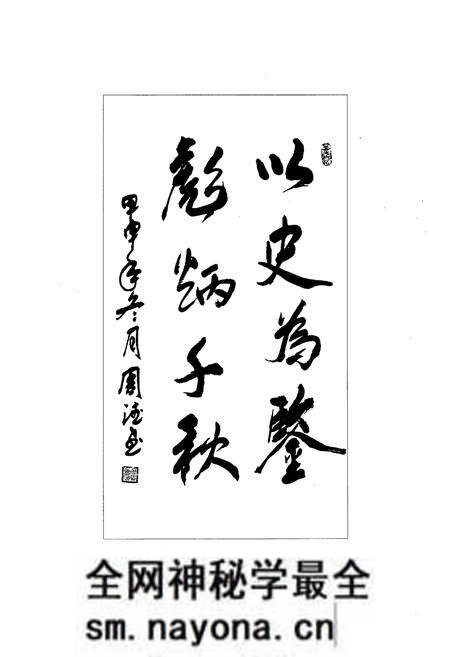 以史為鑒
彪炳千秋
甲申年冬月周
全网神秘学最全
sm.nayona.cn